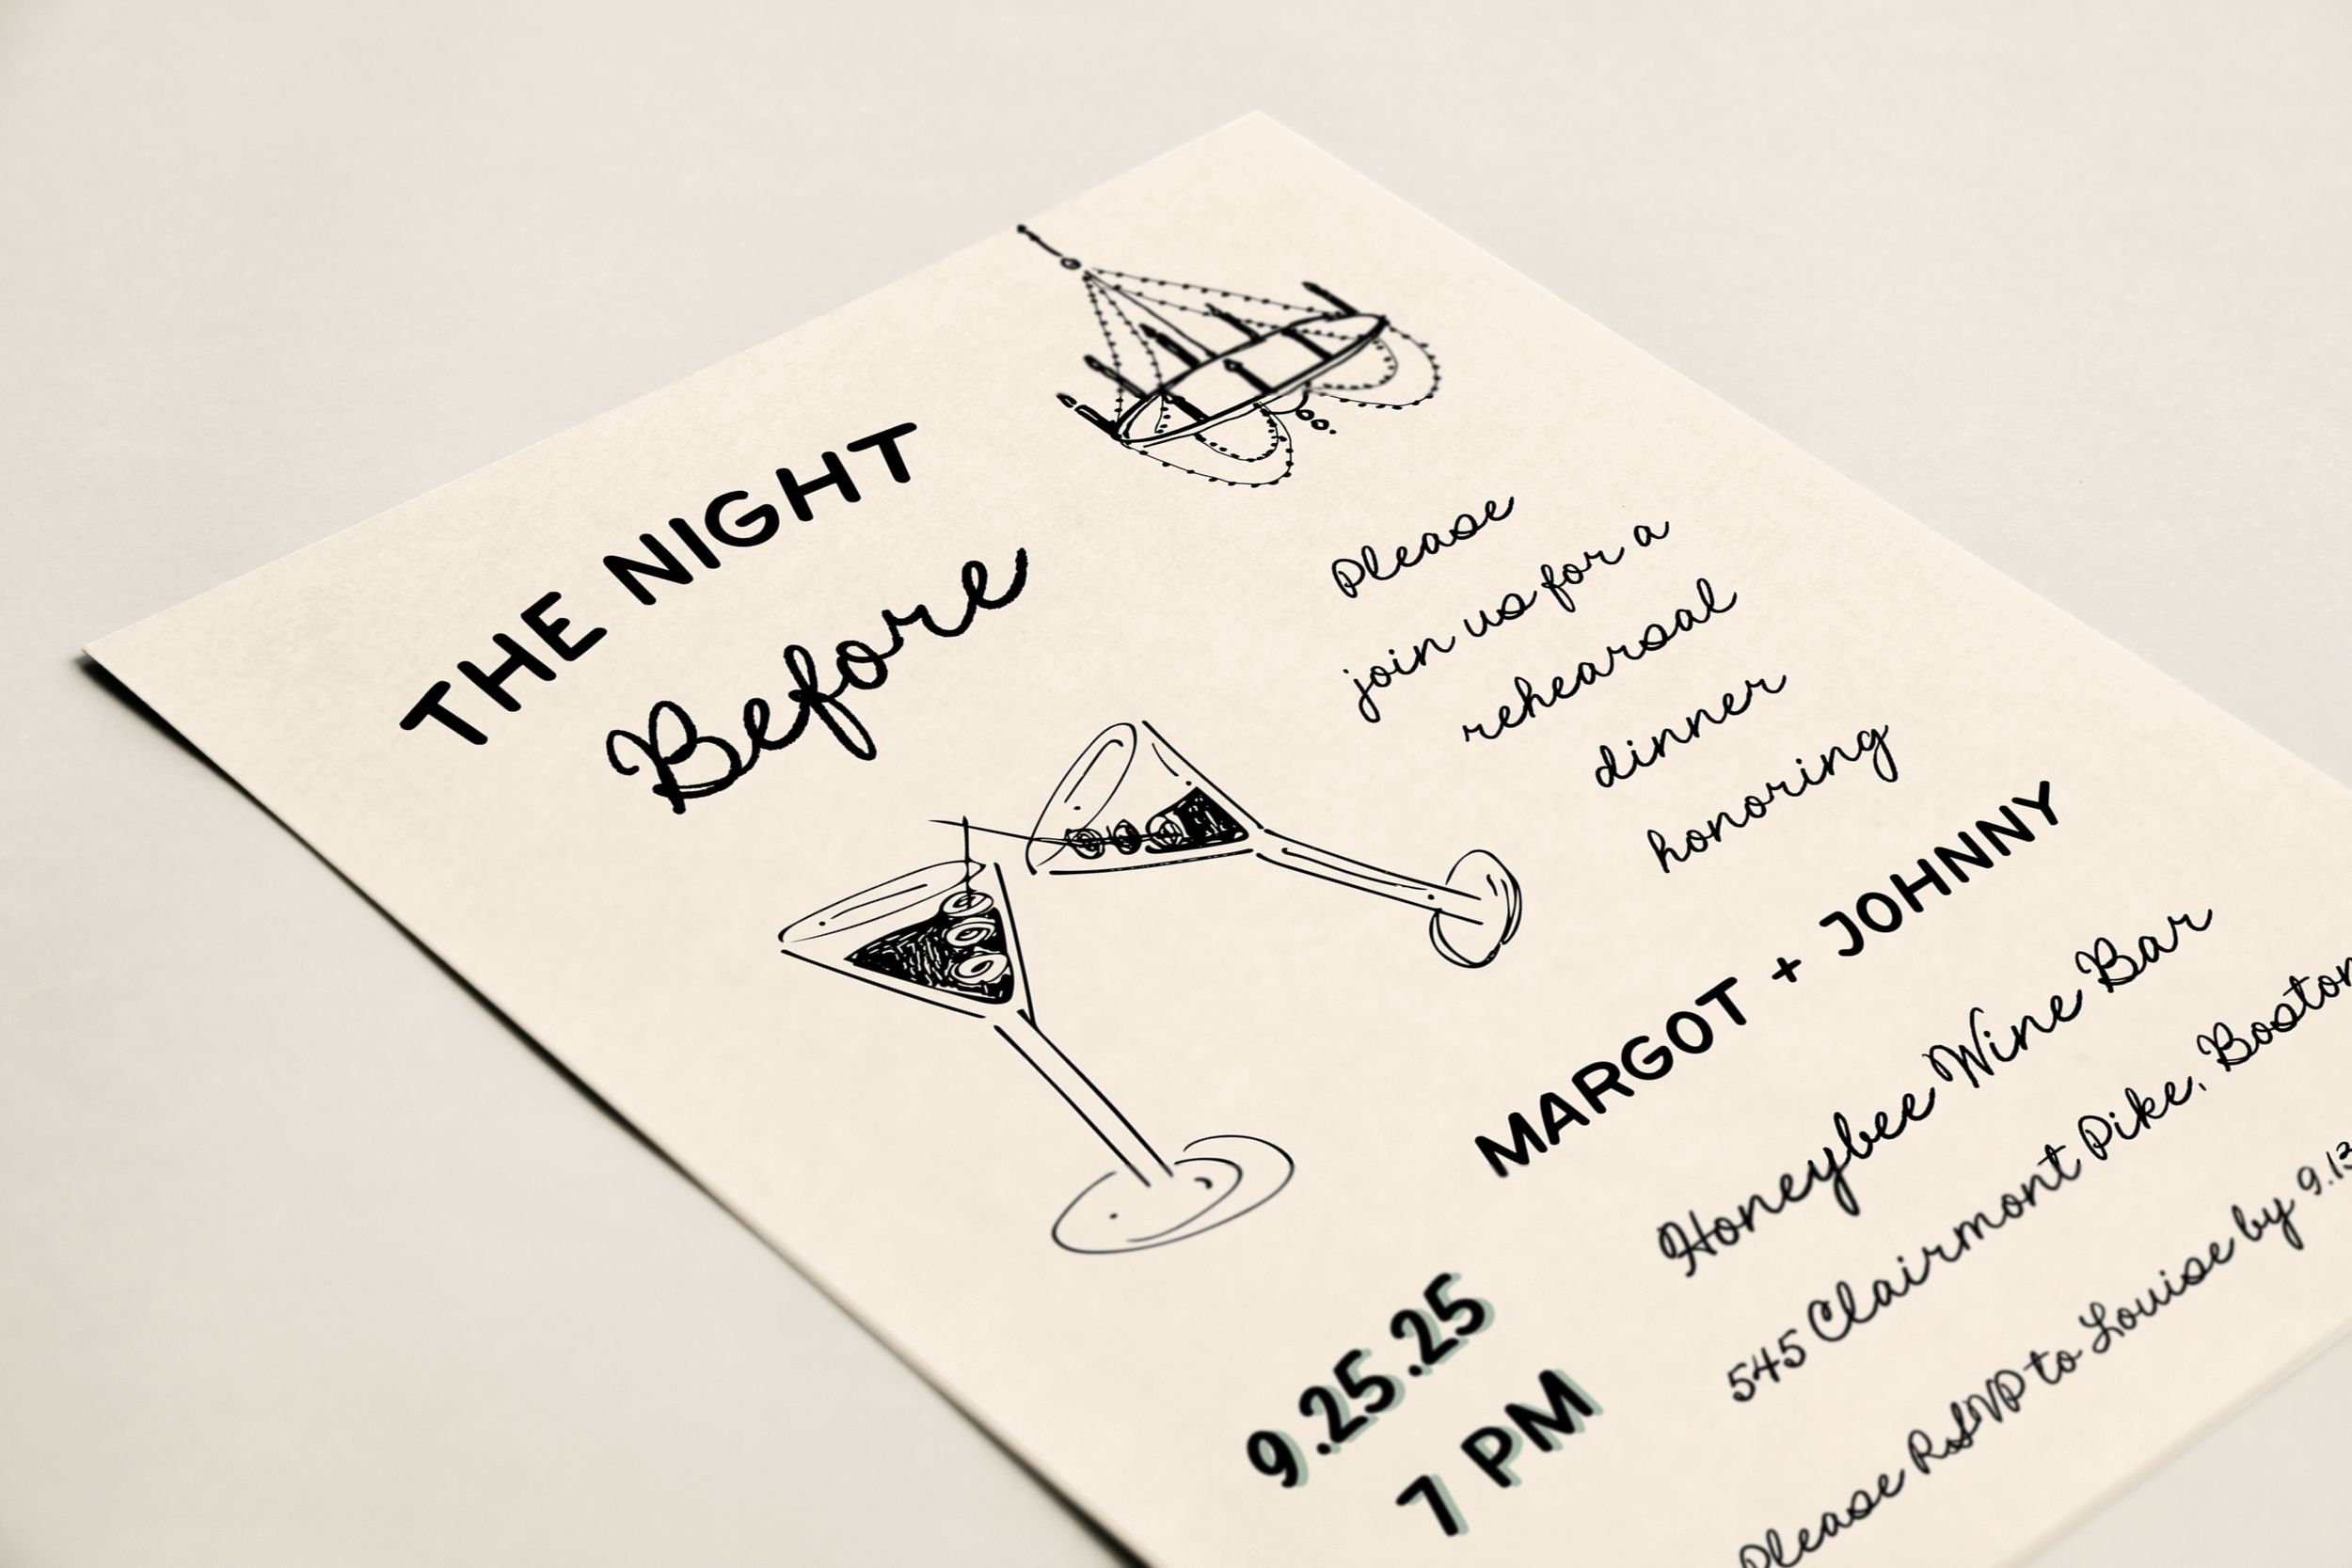 THE NIGHT
Before
Please
join us for a
rehearsal
dinner
honoring
MARGOT + JOHNNY
Honeybee Wine Bar
545 Clairmont Pike, Boston
Please RSVP to Louise by 9.13
9.25.25
7 PM